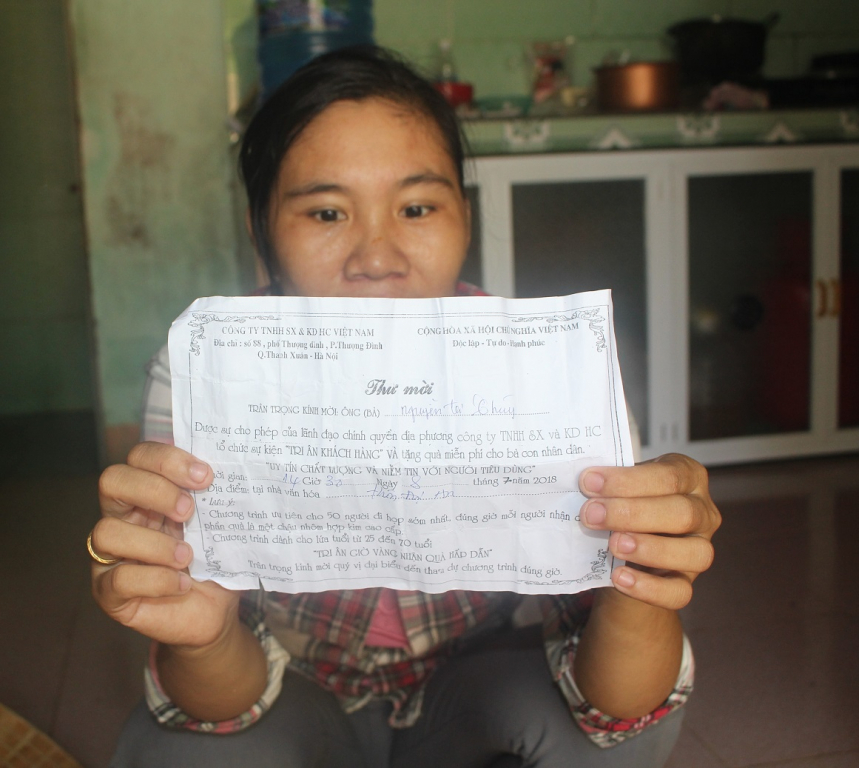 CÔNG TY TNHH SX & KD HC VIỆT NAM
Địa chỉ : số 88 , phố Thượng đình , P.Thượng Đình
Q.Thanh Xuân - Hà Nội
CỘNG HÒA XÃ HỘI CHỦ NGHĨA VIỆT NAM
Độc lập - Tự do - Hạnh phúc
Thư mời
TRÂN TRỌNG KÍNH MỜI: ÔNG (BÀ) Nguyễn Thị Thuỷ
Được sự cho phép của lãnh đạo chính quyền địa phương công ty TNHH SX và KD HC
tổ chức sự kiện "TRI ÂN KHÁCH HÀNG" VÀ tặng quà miễn phí cho bà con nhân dân.
"UY TÍN CHẤT LƯỢNG VÀ NIỀM TIN VỚI NGƯỜI TIÊU DÙNG"
gian: 14 Giờ 30 Ngày 5 tháng 7 năm 2018
- Địa điểm: tại nhà văn hóa
* Lưu ý:
- Chương trình ưu tiên cho 50 người đi họp sớm nhất, đúng giờ mỗi người nhận
phần quà là một chậu nhôm hợp kim cao cấp.
- Chương trình dành cho lứa tuổi từ 25 đến 70 tuổi
"TRI ÂN GIỜ VÀNG NHẬN QUÀ HẤP DẪN"
Trân trọng kính mời quý vị đại biểu đến tham dự chương trình đúng giờ.